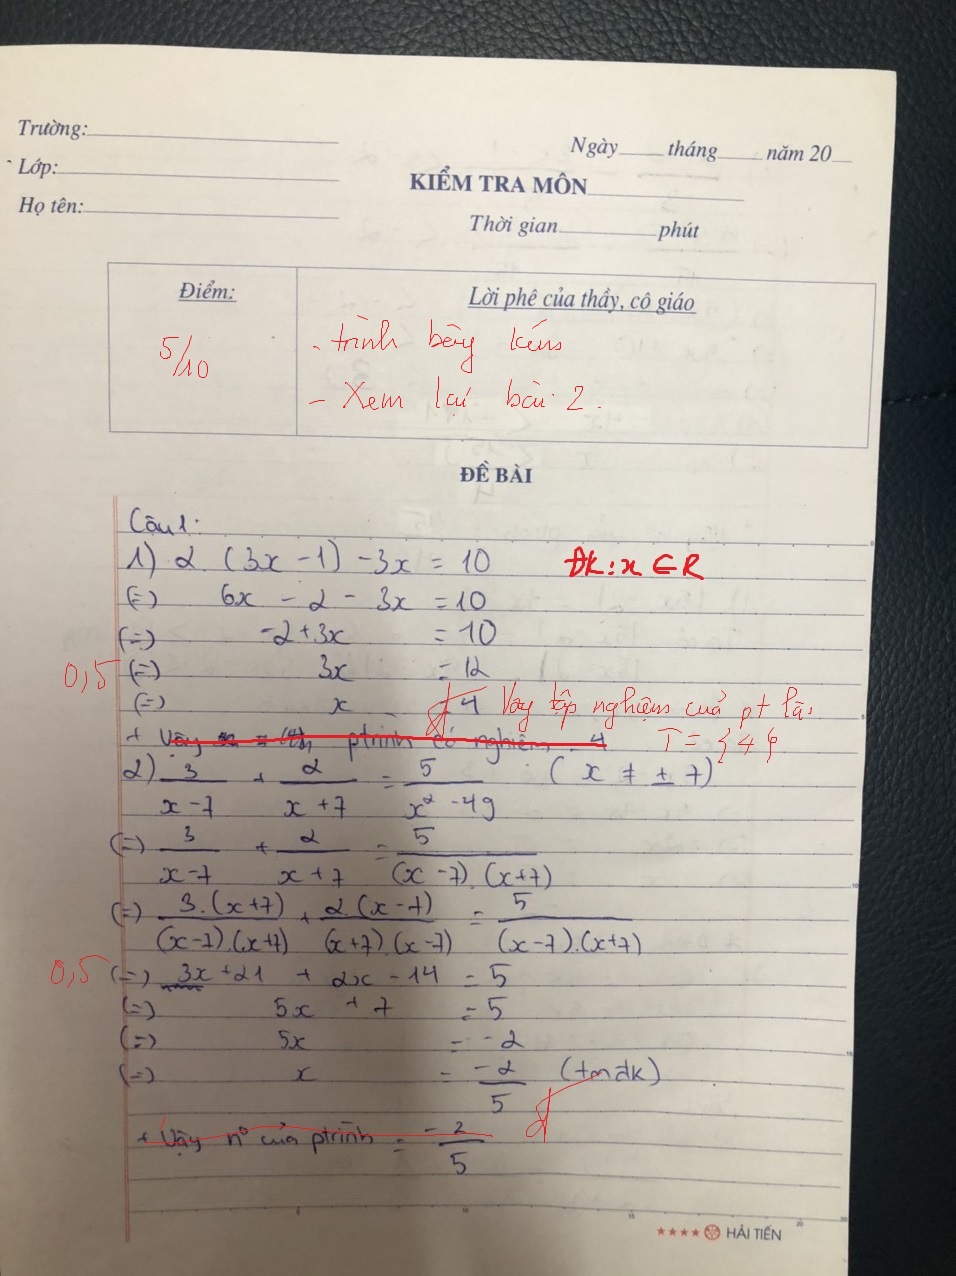 Trường:
Ngày tháng năm 20
Lớp:
KIỂM TRA MÔN
Họ tên:
Thời gian phút
Điểm:
Lời phê của thầy, cô giáo
5/10
- trình bày kém
- Xem lại bài 2.
ĐỀ BÀI
Câu 1:
1) 2 (3x - 1) - 3x = 10 ĐK: x ∈ R
(=) 6x - 2 - 3x = 10
(=) -2 + 3x = 10
0,5 (=) 3x = 12
(=) x = 4 Vậy tập nghiệm của pt là:
+ Vậy ptrình có nghiệm 4 T = {4}
2) 3/(x-7) + 2/(x+7) = 5/(x² - 49) (x ≠ ± 7)
(=) 3/(x-7) + 2/(x+7) = 5/((x-7).(x+7))
(=) 3.(x+7)/((x-7).(x+7)) + 2.(x-7)/((x+7).(x-7)) = 5/((x-7).(x+7))
0,5 (=) 3x + 21 + 2x - 14 = 5
(=) 5x + 7 = 5
(=) 5x = -2
(=) x = -2/5 (tm đk)
+ Vậy n° của ptrình = -2/5
HẢI TIẾN